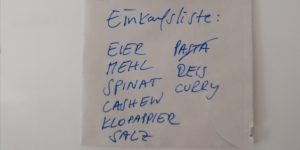 Einkaufsliste:
EIER
MEHL
SPINAT
CASHEW
KLOPAPIER
SALZ
PASTA
REIS
CURRY